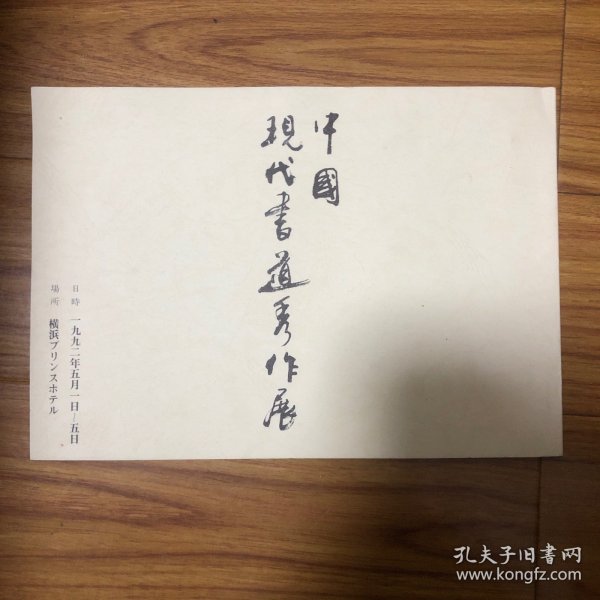 中國
現代書道秀作展
日時 一九九二年五月一日—五日
場所 横浜プリンスホテル
孔夫子旧书网
www.kongfz.com